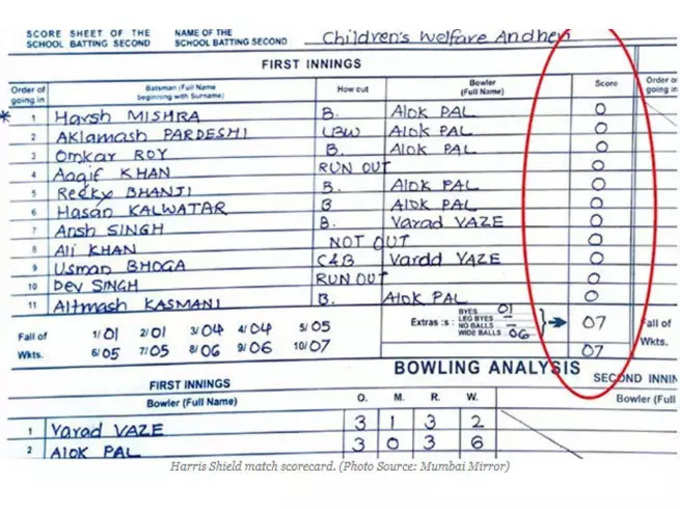 SCORE SHEET OF THE SCHOOL BATTING SECOND NAME OF THE SCHOOL BATTING SECOND Children's Welfare Andheri
FIRST INNINGS
Order of going in Batsman (Full Name beginning with Surname) How out Bowler (Full Name) Score Order o going in
* 1 Harsh MISHRA B. Alok PAL 0
2 Aklamash PARDESHI LBW Alok PAL 0
3 Omkar ROY B. Alok PAL 0
4 Aaqif KHAN RUN OUT 0
5 Recky BHANJI B. Alok PAL 0
6 Hasan KALWATAR B Alok PAL 0
7 Ansh SINGH B. Varad VAZE 0
8 Ali KHAN NOT OUT 0
9 Usman BHOGA C&B Varad VAZE 0
10 Dev SINGH RUN OUT 0
11 Altmash KASMANI B. Alok PAL 0
Fall of Wkts. 1/01 2/01 3/04 4/04 5/05
6/05 7/05 8/06 9/06 10/07
Extras :s : BYES 01
LEG BYES –
NO BALLS –
WIDE BALLS 06
07
07
Fall of Wkts.
BOWLING ANALYSIS
FIRST INNINGS SECOND INNIN
Bowler (Full Name) O. M. R. W. Bowler (Full
1 Varad VAZE 3 1 3 2
2 Alok PAL 3 0 3 6
Harris Shield match scorecard. (Photo Source: Mumbai Mirror)